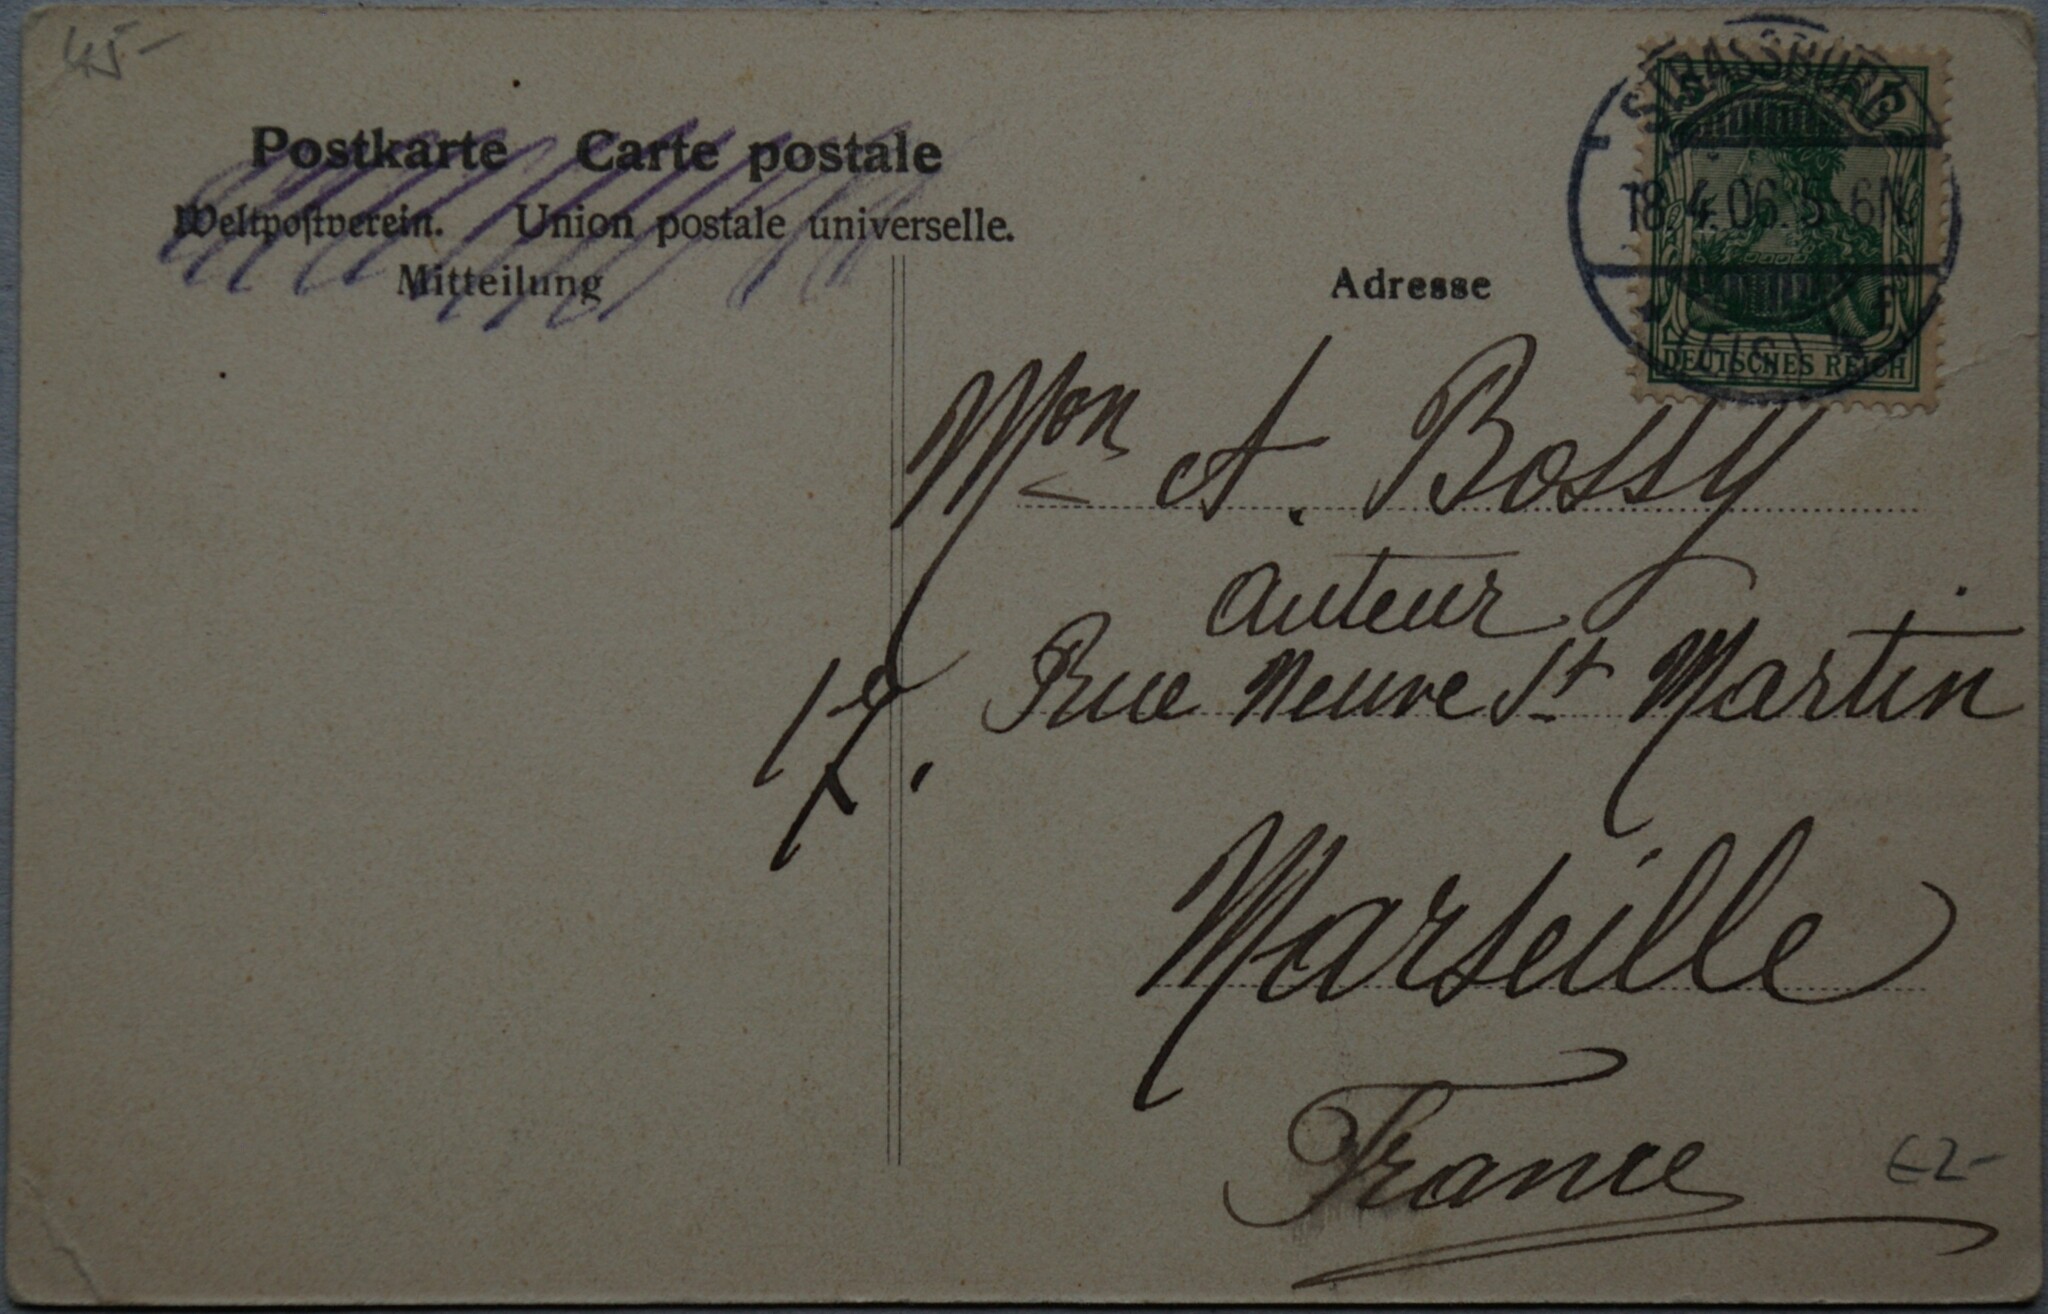 45-
Postkarte Carte postale
Weltpostverein. Union postale universelle.
Mitteilung
Adresse
STRASSBURG
18.4.06. 5-6N.
DEUTSCHES REICH
Mon A. Bossy
auteur
17. Rue Neuve St Martin
Marseille
France
€2-